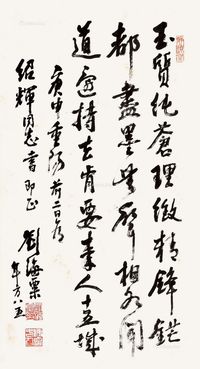 玉質純蒼理緻精鋒鋩
都盡墨無聲相如聞
道還持去肯要秦人十五城
庚申重陽前二日為
紹輝同志書即正
劉海粟
年方八五